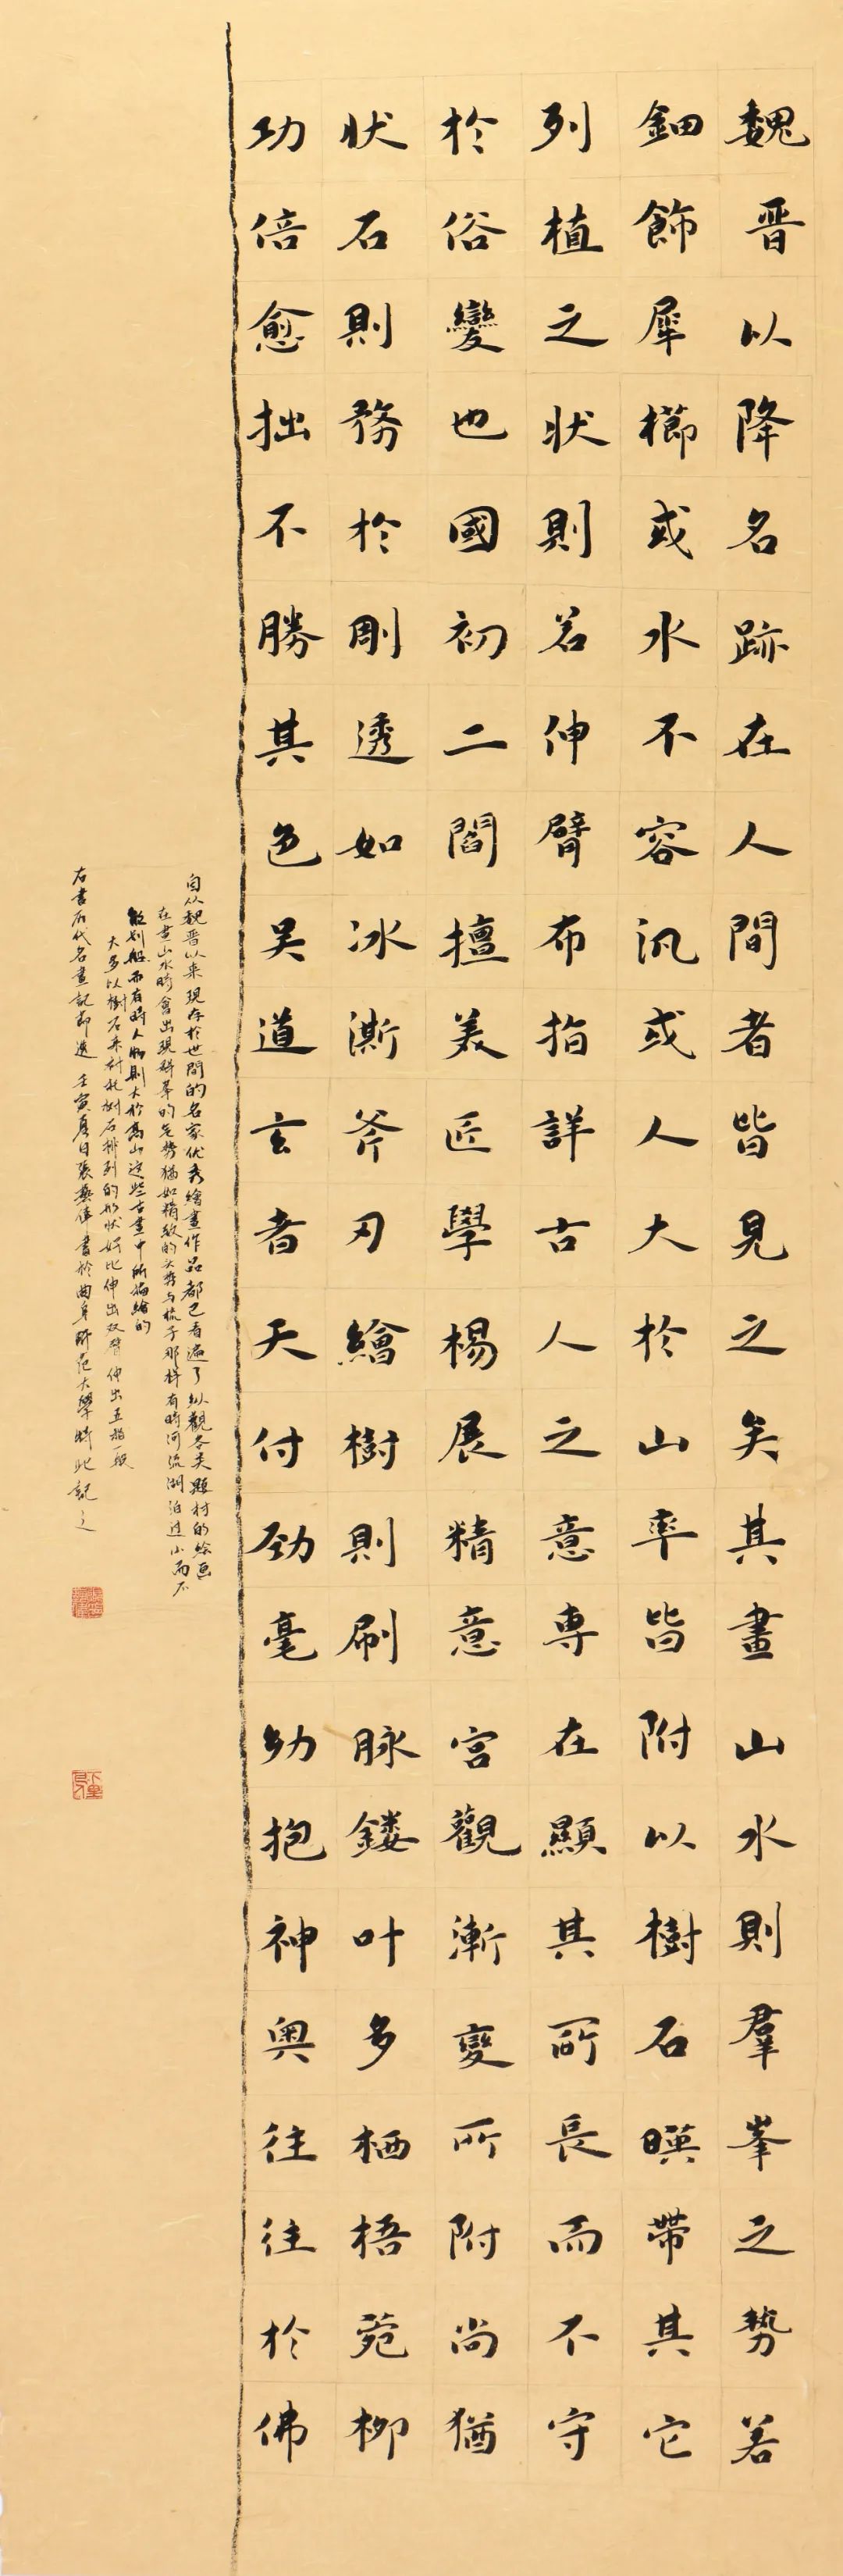 魏晋以降名跡在人間者皆見之矣其畫山水則羣峯之勢若
鈿飾犀櫛或水不容汎或人大於山率皆附以樹石暎帶其它
列植之狀則若伸臂布指詳古人之意専在顯其所長而不守
於俗變也國初二閻擅美匠學楊展精意宮觀漸變所附尚猶
狀石則務於剛透如冰澌斧刃繪樹則刷脉鏤叶多栖梧菀柳
功倍愈拙不勝其色吴道玄者天付劲毫幼抱神奥往往於佛
自从魏晋以来現存於世間的名家优秀繪畫作品都已看遍了纵觀各类題材的绘画
在畫山水時會出現群峯的走势猶如精致的头飾与梳子那样有時河流湖泊过小而不
能划船而有時人物則大於高山这些古畫中所描繪的
大多以樹石来衬托樹石排列的形狀好比伸出双臂伸出五指一般
右書历代名畫記節选 壬寅夏日張 偉書於曲阜师范大學時 記之